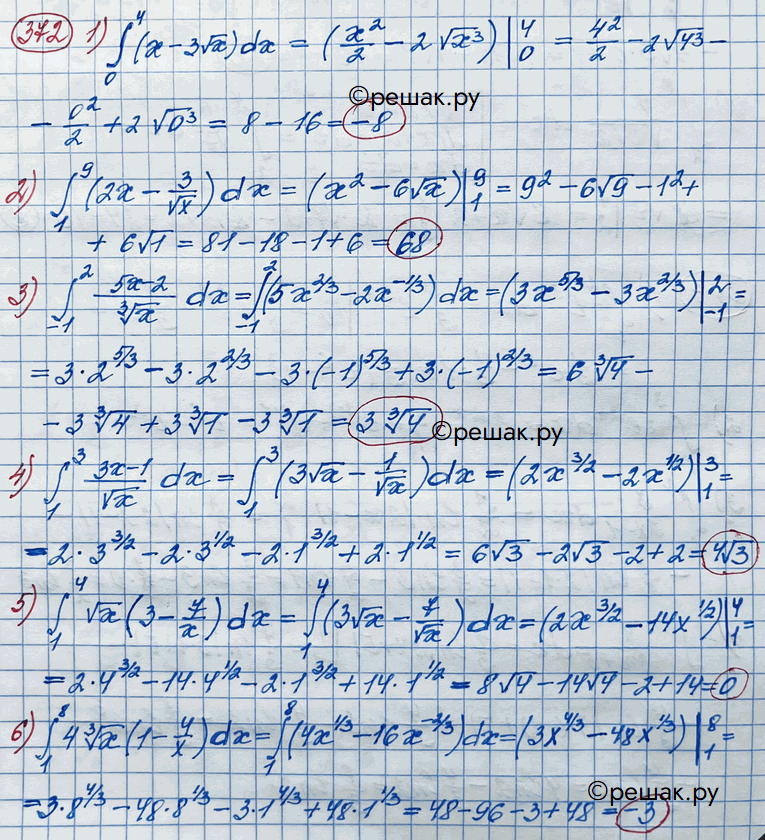 372 1) ∫₀⁴ (x − 3√x) dx = (x²/2 − 2√x³) |⁴₀ = 4²/2 − 2√4³ −
©решак.ру
− 0²/2 + 2√0³ = 8 − 16 = −8
2) ∫₁⁹ (2x − 3/√x) dx = (x² − 6√x) |⁹₁ = 9² − 6√9 − 1² +
+ 6√1 = 81 − 18 − 1 + 6 = 68
3) ∫₋₁² (5x−2)/∛x dx = ∫₋₁² (5x^(2/3) − 2x^(−1/3)) dx = (3x^(5/3) − 3x^(2/3)) |²₋₁ =
= 3·2^(5/3) − 3·2^(2/3) − 3·(−1)^(5/3) + 3·(−1)^(2/3) = 6∛4 −
− 3∛4 + 3∛1 − 3∛1 = 3∛4
©решак.ру
4) ∫₁³ (3x−1)/√x dx = ∫₁³ (3√x − 1/√x) dx = (2x^(3/2) − 2x^(1/2)) |³₁ =
= 2·3^(3/2) − 2·3^(1/2) − 2·1^(3/2) + 2·1^(1/2) = 6√3 − 2√3 − 2 + 2 = 4√3
5) ∫₁⁴ √x (3 − 7/x) dx = ∫₁⁴ (3√x − 7/√x) dx = (2x^(3/2) − 14x^(1/2)) |⁴₁ =
= 2·4^(3/2) − 14·4^(1/2) − 2·1^(3/2) + 14·1^(1/2) = 8√4 − 14√4 − 2 + 14 = 0
6) ∫₁⁸ 4∛x (1 − 4/x) dx = ∫₁⁸ (4x^(1/3) − 16x^(−2/3)) dx = (3x^(4/3) − 48x^(1/3)) |⁸₁ =
©решак.ру
= 3·8^(4/3) − 48·8^(1/3) − 3·1^(4/3) + 48·1^(1/3) = 48 − 96 − 3 + 48 = −3